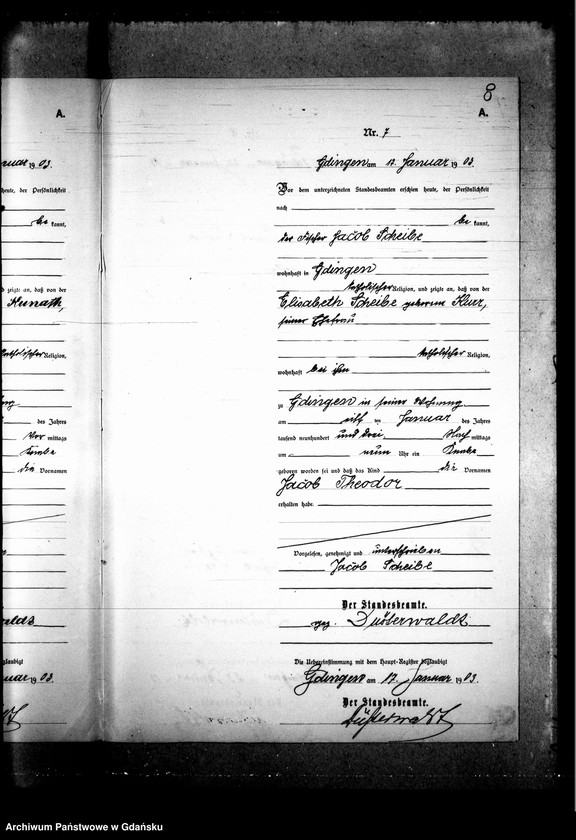 8
A.
A.
Nr. 7
uar 19 03.
Gdingen am 12. Januar 19 03.
heute, der Persönlichkeit
Vor dem unterzeichneten Standesbeamten erschien heute, der Persönlichkeit
nach
be kannt,
be kannt,
der Fischer Jacob Scheibe
wohnhaft in Gdingen
d zeigte an, daß von der
katholischer Religion, und zeigte an, daß von der
Elisabeth Scheibe geborene Kurr,
seiner Ehefrau
katholischer Religion,
katholischer Religion,
wohnhaft bei ihm
zu Gdingen in seiner Wohnung
des Jahres
am elft en Januar des Jahres
Vor mittags
tausend neunhundert und drei Nach mittags
Knabe
um neun Uhr ein Knabe
die Vornamen
geboren worden sei und daß das Kind die Vornamen
Jacob Theodor
erhalten habe.
Vorgelesen, genehmigt und unterschrieben
Jacob Scheibe
Der Standesbeamte.
gez. Düsterwaldt
glaubigt
Die Uebereinstimmung mit dem Haupt-Register beglaubigt
uar 19 03.
Gdingen am 12. Januar 19 03.
Der Standesbeamte.
Düsterwaldt
Archiwum Państwowe w Gdańsku